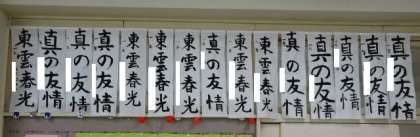 真の友情
真の友情
真の友情
真の友情
真の友情
東雲春光
東雲春光
真の友情
東雲春光
東雲春光
東雲春光
真の友情
真の友情
真の友情
東雲春光